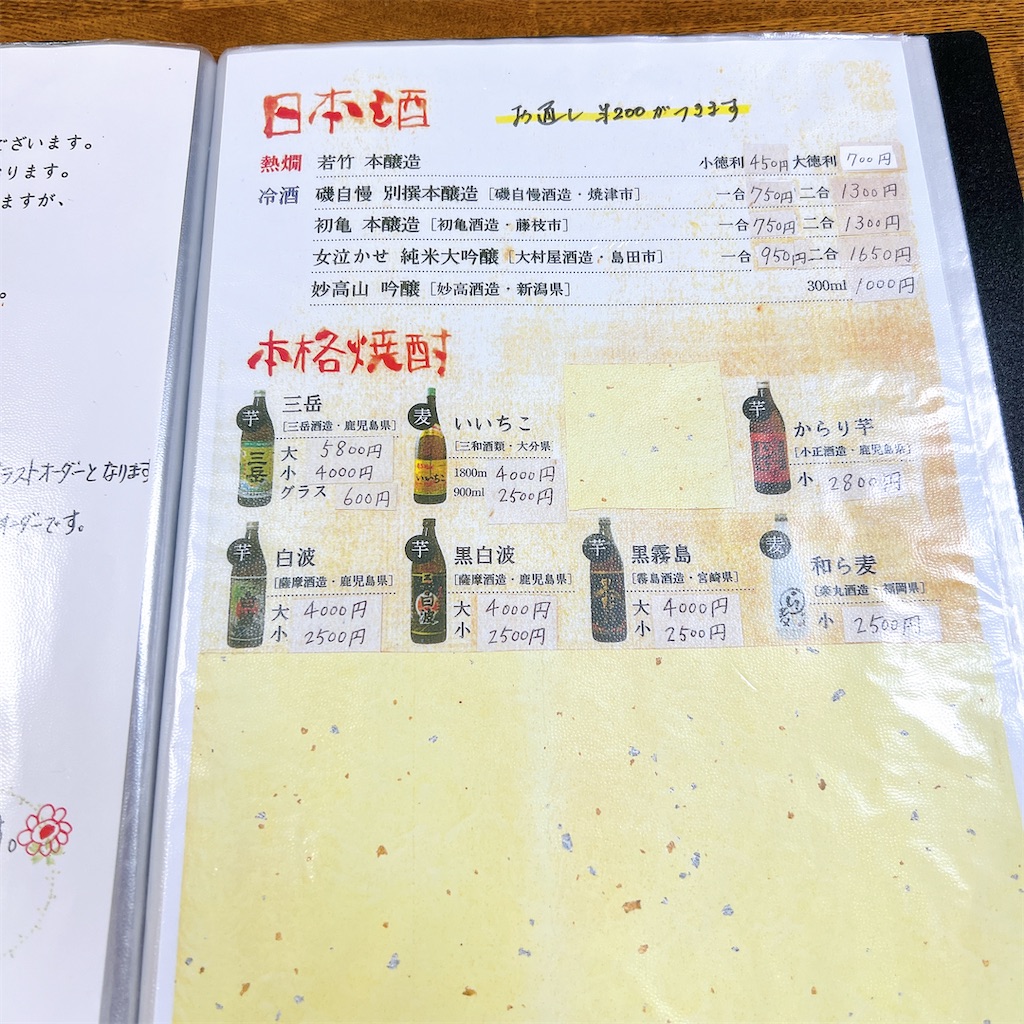 ございます。
ります。
ますが、
。
ラストオーダーとなります
オーダーです。
す。
日本酒
お通し ¥200がつきます
熱燗 若竹 本醸造 小徳利 450円 大徳利 700円
冷酒 磯自慢 別撰本醸造 [磯自慢酒造・焼津市] 一合 750円 二合 1300円
初亀 本醸造 [初亀酒造・藤枝市] 一合 750円 二合 1300円
女泣かせ 純米大吟醸 [大村屋酒造・島田市] 一合 950円 二合 1650円
妙高山 吟醸 [妙高酒造・新潟県] 300ml 1000円
本格焼酎
芋 三岳
[三岳酒造・鹿児島県]
大 5800円
小 4000円
グラス 600円
三岳
麦 いいちこ
[三和酒類・大分県
1800m 4000円
900ml 2500円
いいちこ
芋 からり芋
[小正酒造・鹿児島県]
小 2800円
芋 白波
[薩摩酒造・鹿児島県]
大 4000円
小 2500円
芋 黒白波
[薩摩酒造・鹿児島県]
大 4000円
小 2500円
白波
芋 黒霧島
[霧島酒造・宮崎県]
大 4000円
小 2500円
麦 和ら麦
[楽丸酒造・福岡県]
小 2500円